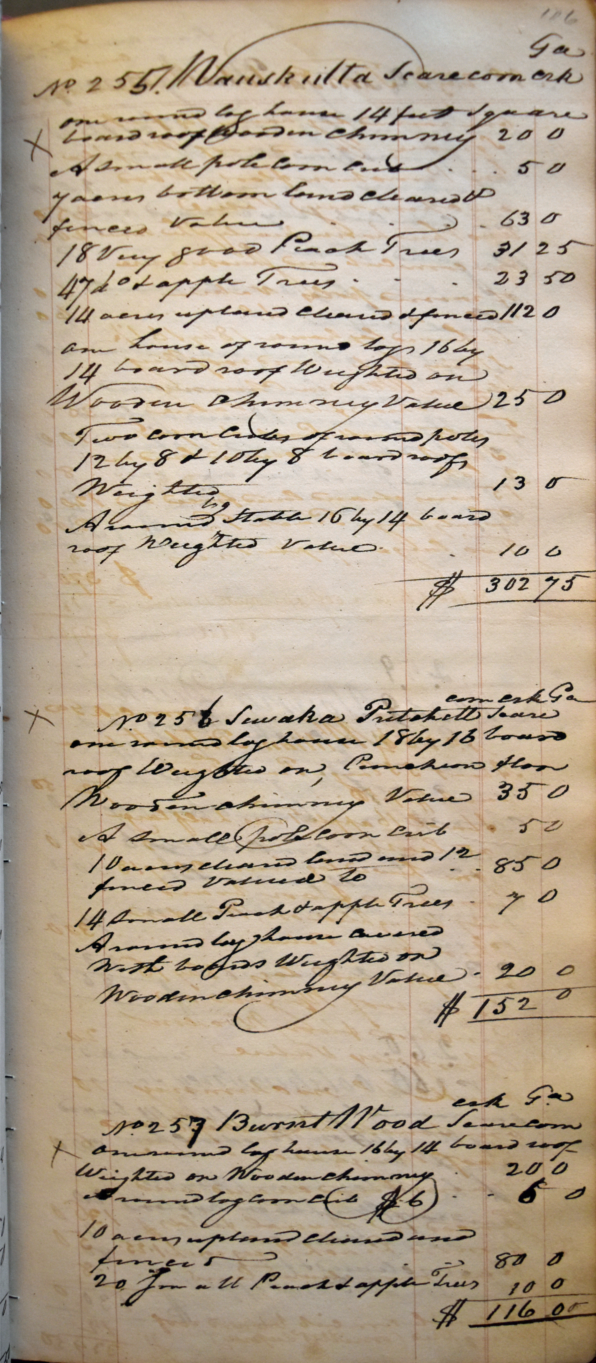 186
Ga
No 255. Wauskulta Scarecorn crk
one round log house 14 feet Square
X board roof Wooden Chimney 20 0
A small pole corn crib . . 5 0
7 acres bottom land cleared &
fenced Value . . . 63 0
18 Very good Peach Trees 31 25
47 do & apple Trees . . . 23 50
14 acres upland cleared & fenced 112 0
one house of round logs 16 by
14 board roof Weighted on
Wooden Chimney Value 25 0
Two corn cribs of round poles
12 by 8 & 10 by 8 board roofs
Weighted 13 0
A round log Stable 16 by 14 board
roof Weighted Value . 10 0
$ 302 75
corn crk Ga
X No 256 Sewaka Pritchett Scare
one round log house 18 by 16 board
roof Weighted on, Puncheon floor
Wooden chimney Value 35 0
A small pole corn crib 5 0
10 acres cleared land and 12
fenced Valued to . . 85 0
14 small Peach & apple Trees . 7 0
A round log house covered
With boards Weighted on
Wooden chimney Value . 20 0
$ 152 0
crk Ga
No 257 Burnt Wood Scarecorn
X one round log house 16 by 14 board roof
Weighted on Wooden chimney . 20 0
A round log corn crib $6 . . 6 0
10 acres upland cleared and
fenced . . . 80 0
20 Small Peach & apple Trees 10 0
$ 116 00